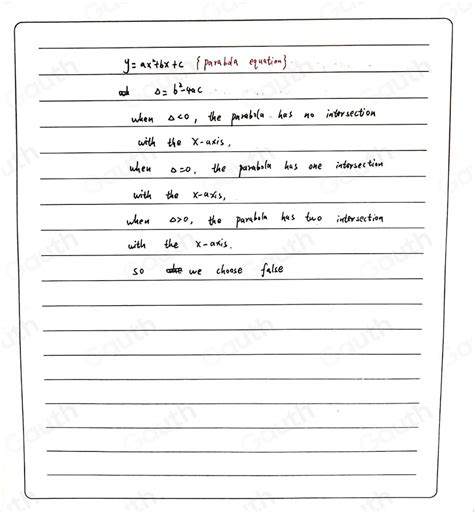 y = ax²+bx+c {parabola equation}
Δ = b²-4ac
when Δ<0, the parabola has no intersection
with the x-axis,
when Δ=0, the parabola has one intersection
with the x-axis,
when Δ>0, the parabola has two intersection
with the x-axis.
so we choose false